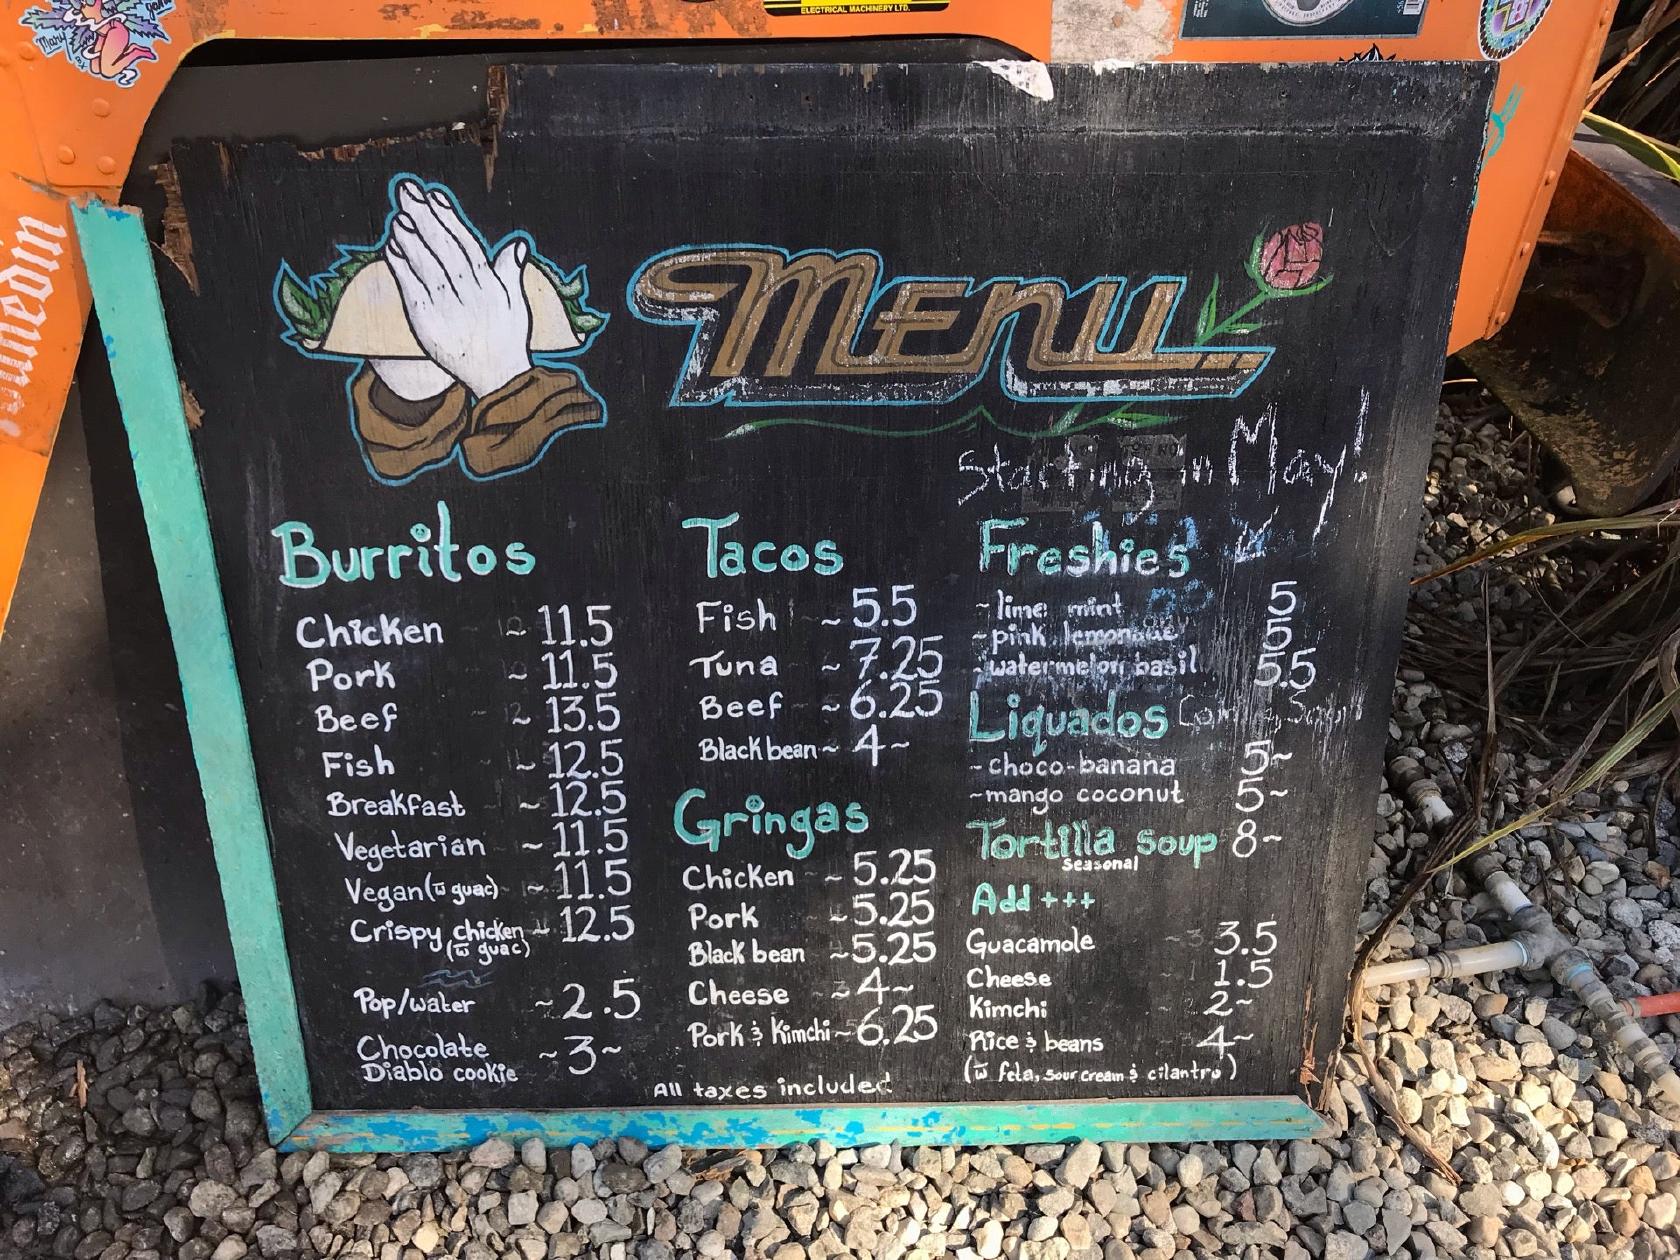 ELECTRICAL MACHINERY LTD.
Mary
Menu
Starting in May!
Burritos
Chicken ~ 11.5
Pork ~ 11.5
Beef ~ 13.5
Fish ~ 12.5
Breakfast ~ 12.5
Vegetarian ~ 11.5
Vegan (w̄ guac) ~ 11.5
Crispy chicken ~ 12.5
(w̄ guac)
Pop/water ~ 2.5
Chocolate
Diablo cookie ~ 3 ~
Tacos
Fish ~ 5.5
Tuna ~ 7.25
Beef ~ 6.25
Black bean ~ 4 ~
Gringas
Chicken ~ 5.25
Pork ~ 5.25
Black bean ~ 5.25
Cheese ~ 4 ~
Pork & Kimchi ~ 6.25
All taxes included
Freshies
~ lime mint 5
~ pink lemonade 5
~ watermelon basil 5.5
Liquados Coming Soon!
~ choco-banana 5 ~
~ mango coconut 5 ~
Tortilla soup 8 ~
Seasonal
Add +++
Guacamole 3.5
Cheese 1.5
Kimchi 2 ~
Rice & beans 4 ~
(w̄ feta, sour cream & cilantro)